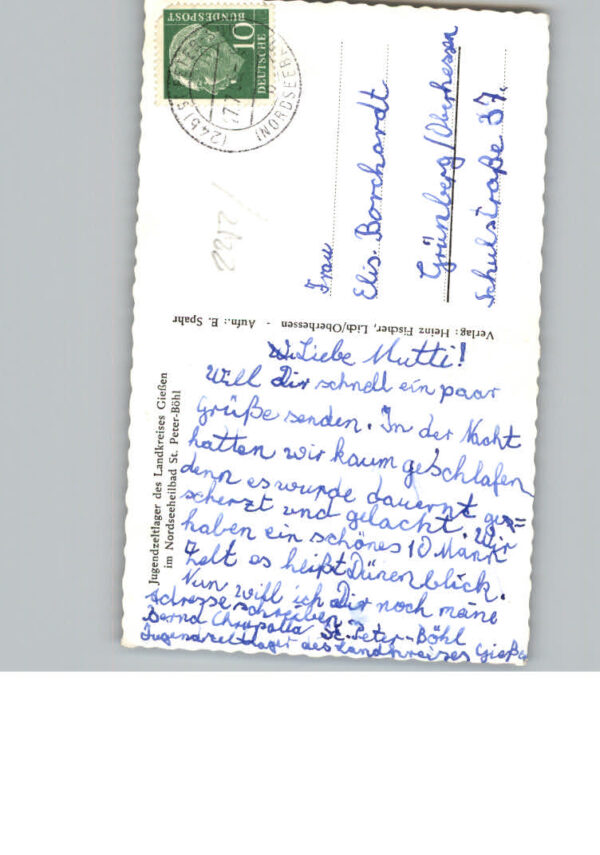 DEUTSCHE
BUNDESPOST
10
(24b) ST. PETER
(NORDSEEB
2212/
Frau
Elis. Borchardt
Grünberg/Oberhessen
Schulstraße 37.
Verlag: Heinz Fischer, Lich/Oberhessen - Aufn.: E. Spahr
Jugendzeltlager des Landkreises Gießen
im Nordseeheilbad St. Peter-Böhl
Liebe Mutti!
Will Dir schnell ein paar
Grüße senden. In der Nacht
hatten wir kaum geschlafen
denn es wurde dauernt ge=
scherzt und gelacht. Wir
haben ein schönes 10 Mann
Zelt es heißt Dünenblick.
Nun will ich Dir noch mäne
Adresse schreiben
Bernd St. Peter-Böhl
Jugendzeltlager des Landkreises Gießen